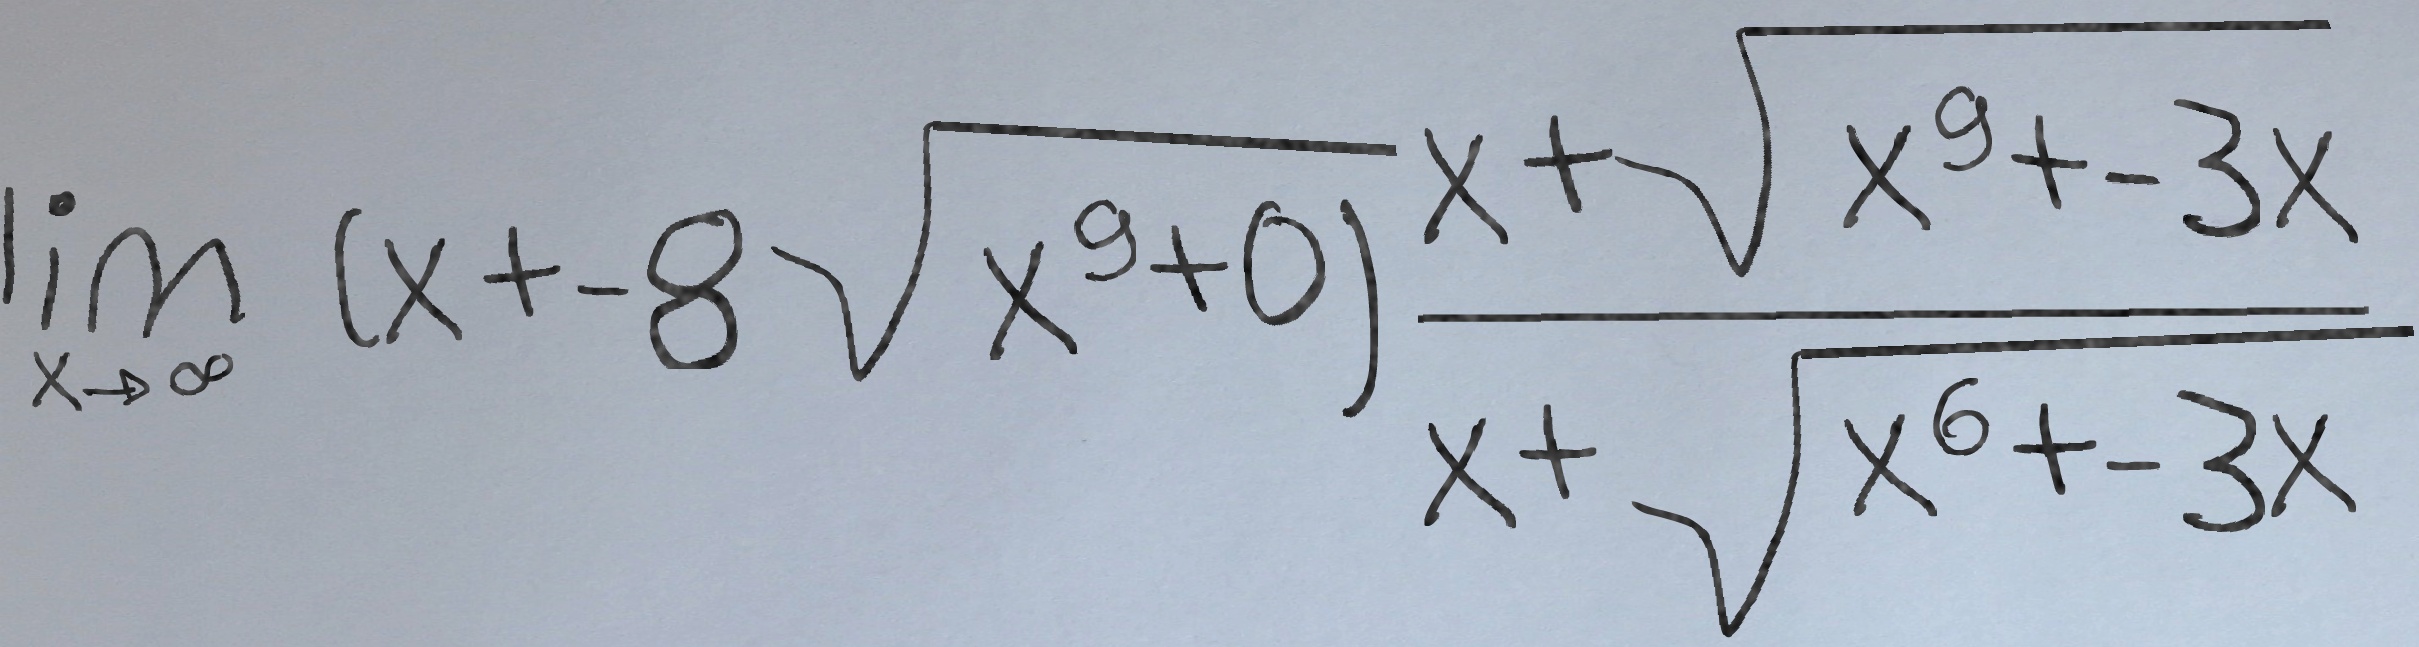 \lim_{x \to \infty} (x + -8\sqrt{x^9 + 0}) \frac{x + \sqrt{x^9 + -3x}}{x + \sqrt{x^6 + -3x}}